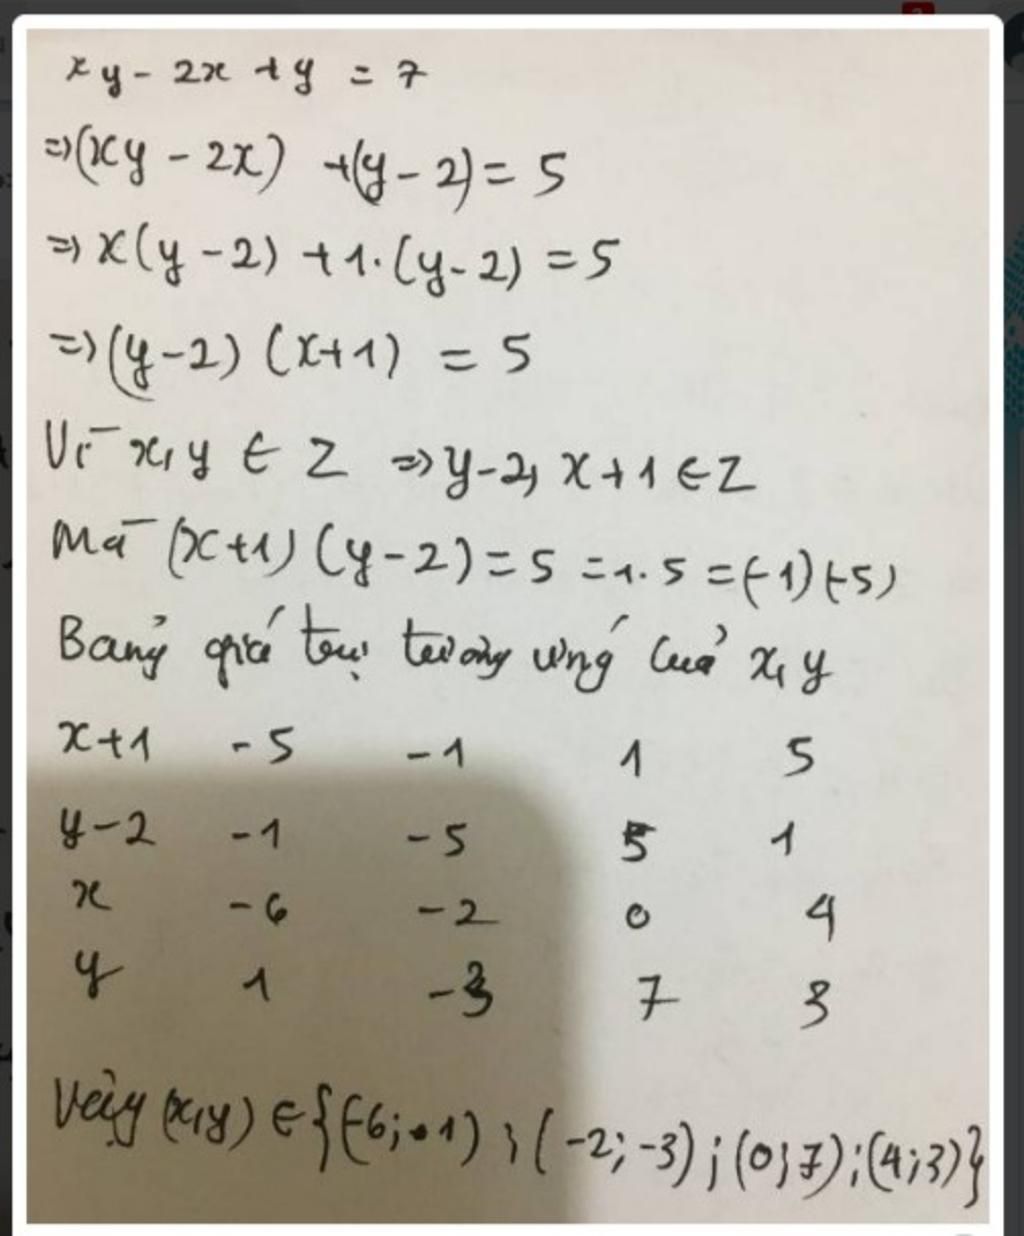 xy - 2x + y = 7
=> (xy - 2x) + (y - 2) = 5
=> x(y - 2) + 1. (y - 2) = 5
=> (y - 2) (x + 1) = 5
Vì x, y ∈ Z => y - 2, x + 1 ∈ Z
Mà (x + 1) (y - 2) = 5 = 1. 5 = (-1) (-5)
Bảng giá trị tương ứng của x, y
x + 1 -5 -1 1 5
y - 2 -1 -5 5 1
x -6 -2 0 4
y 1 -3 7 3
Vậy (x, y) ∈ {(-6; 1) ; (-2; -3) ; (0; 7) ; (4; 3)}